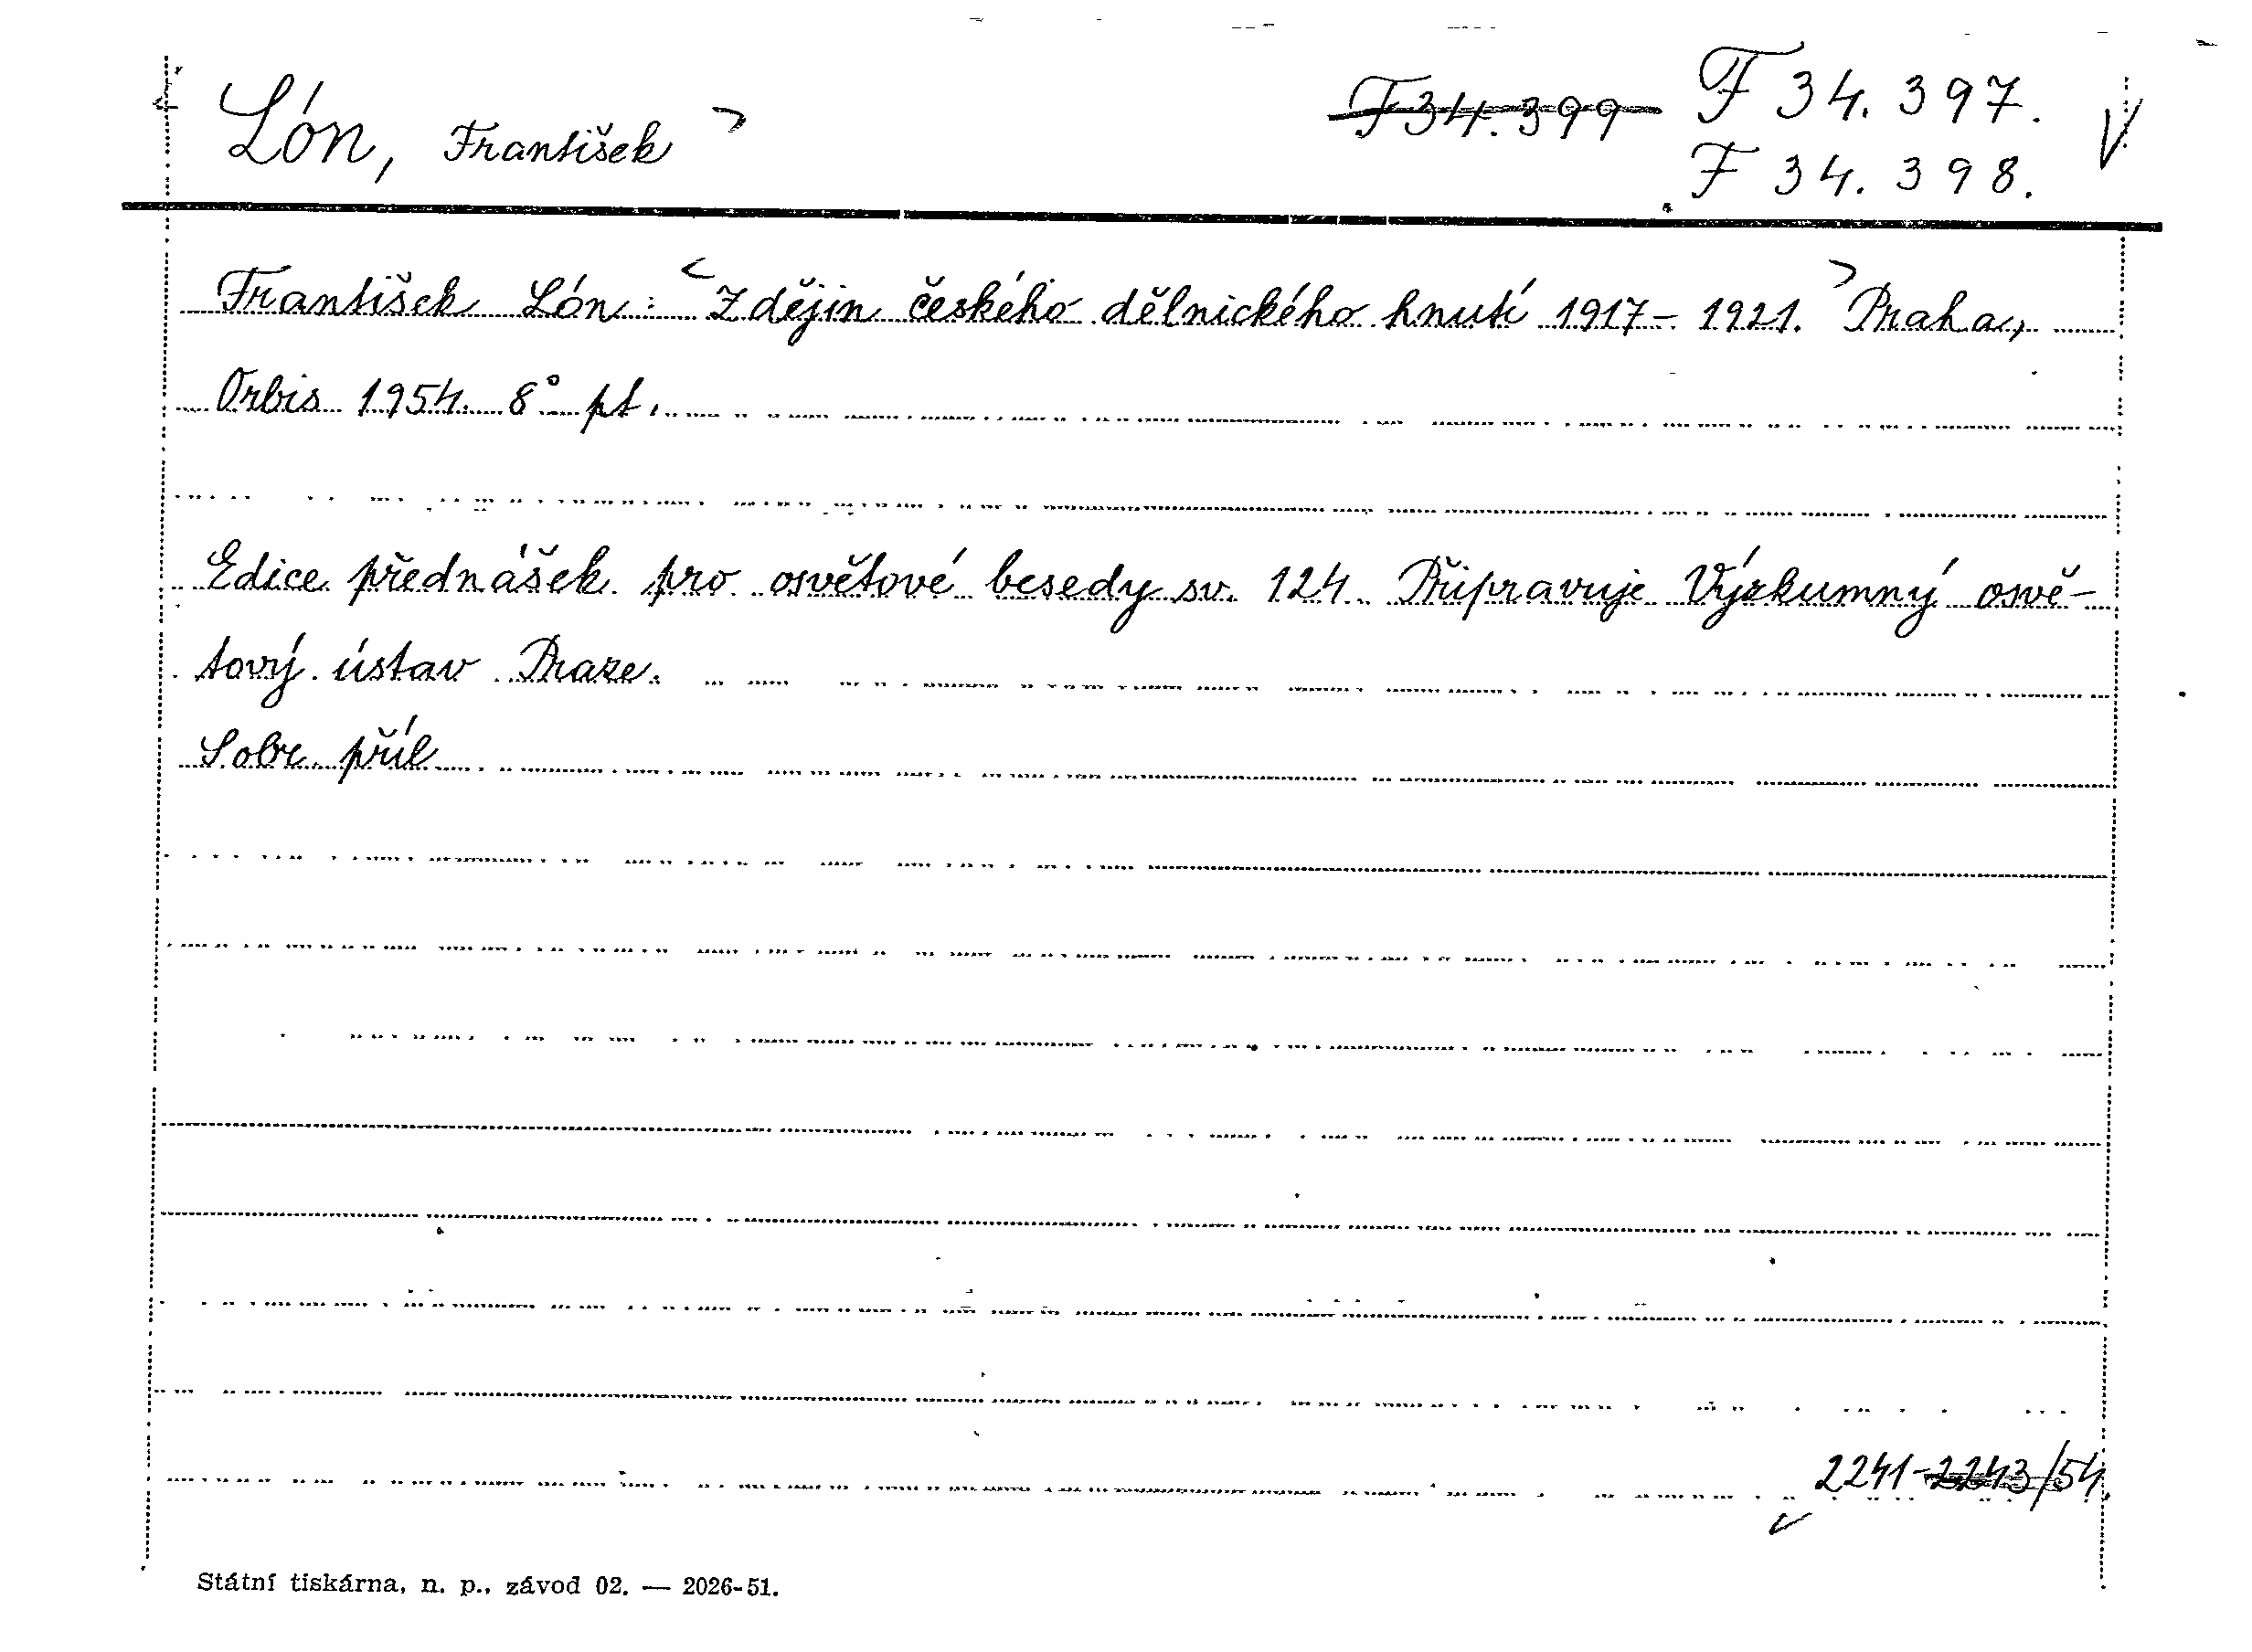 Lón, František F 34.399 F 34.397.
F 34.398.
František Lón: Z dějin českého dělnického hnutí 1917 – 1921. Praha,
Orbis 1954. 8° pt.
Edice přednášek pro osvětové besedy sv. 124. Připravuje Výzkumný osvě-
tový ústav Praze.
S obr. příl
2241-2243/54.
Státní tiskárna, n. p., závod 02. — 2026-51.